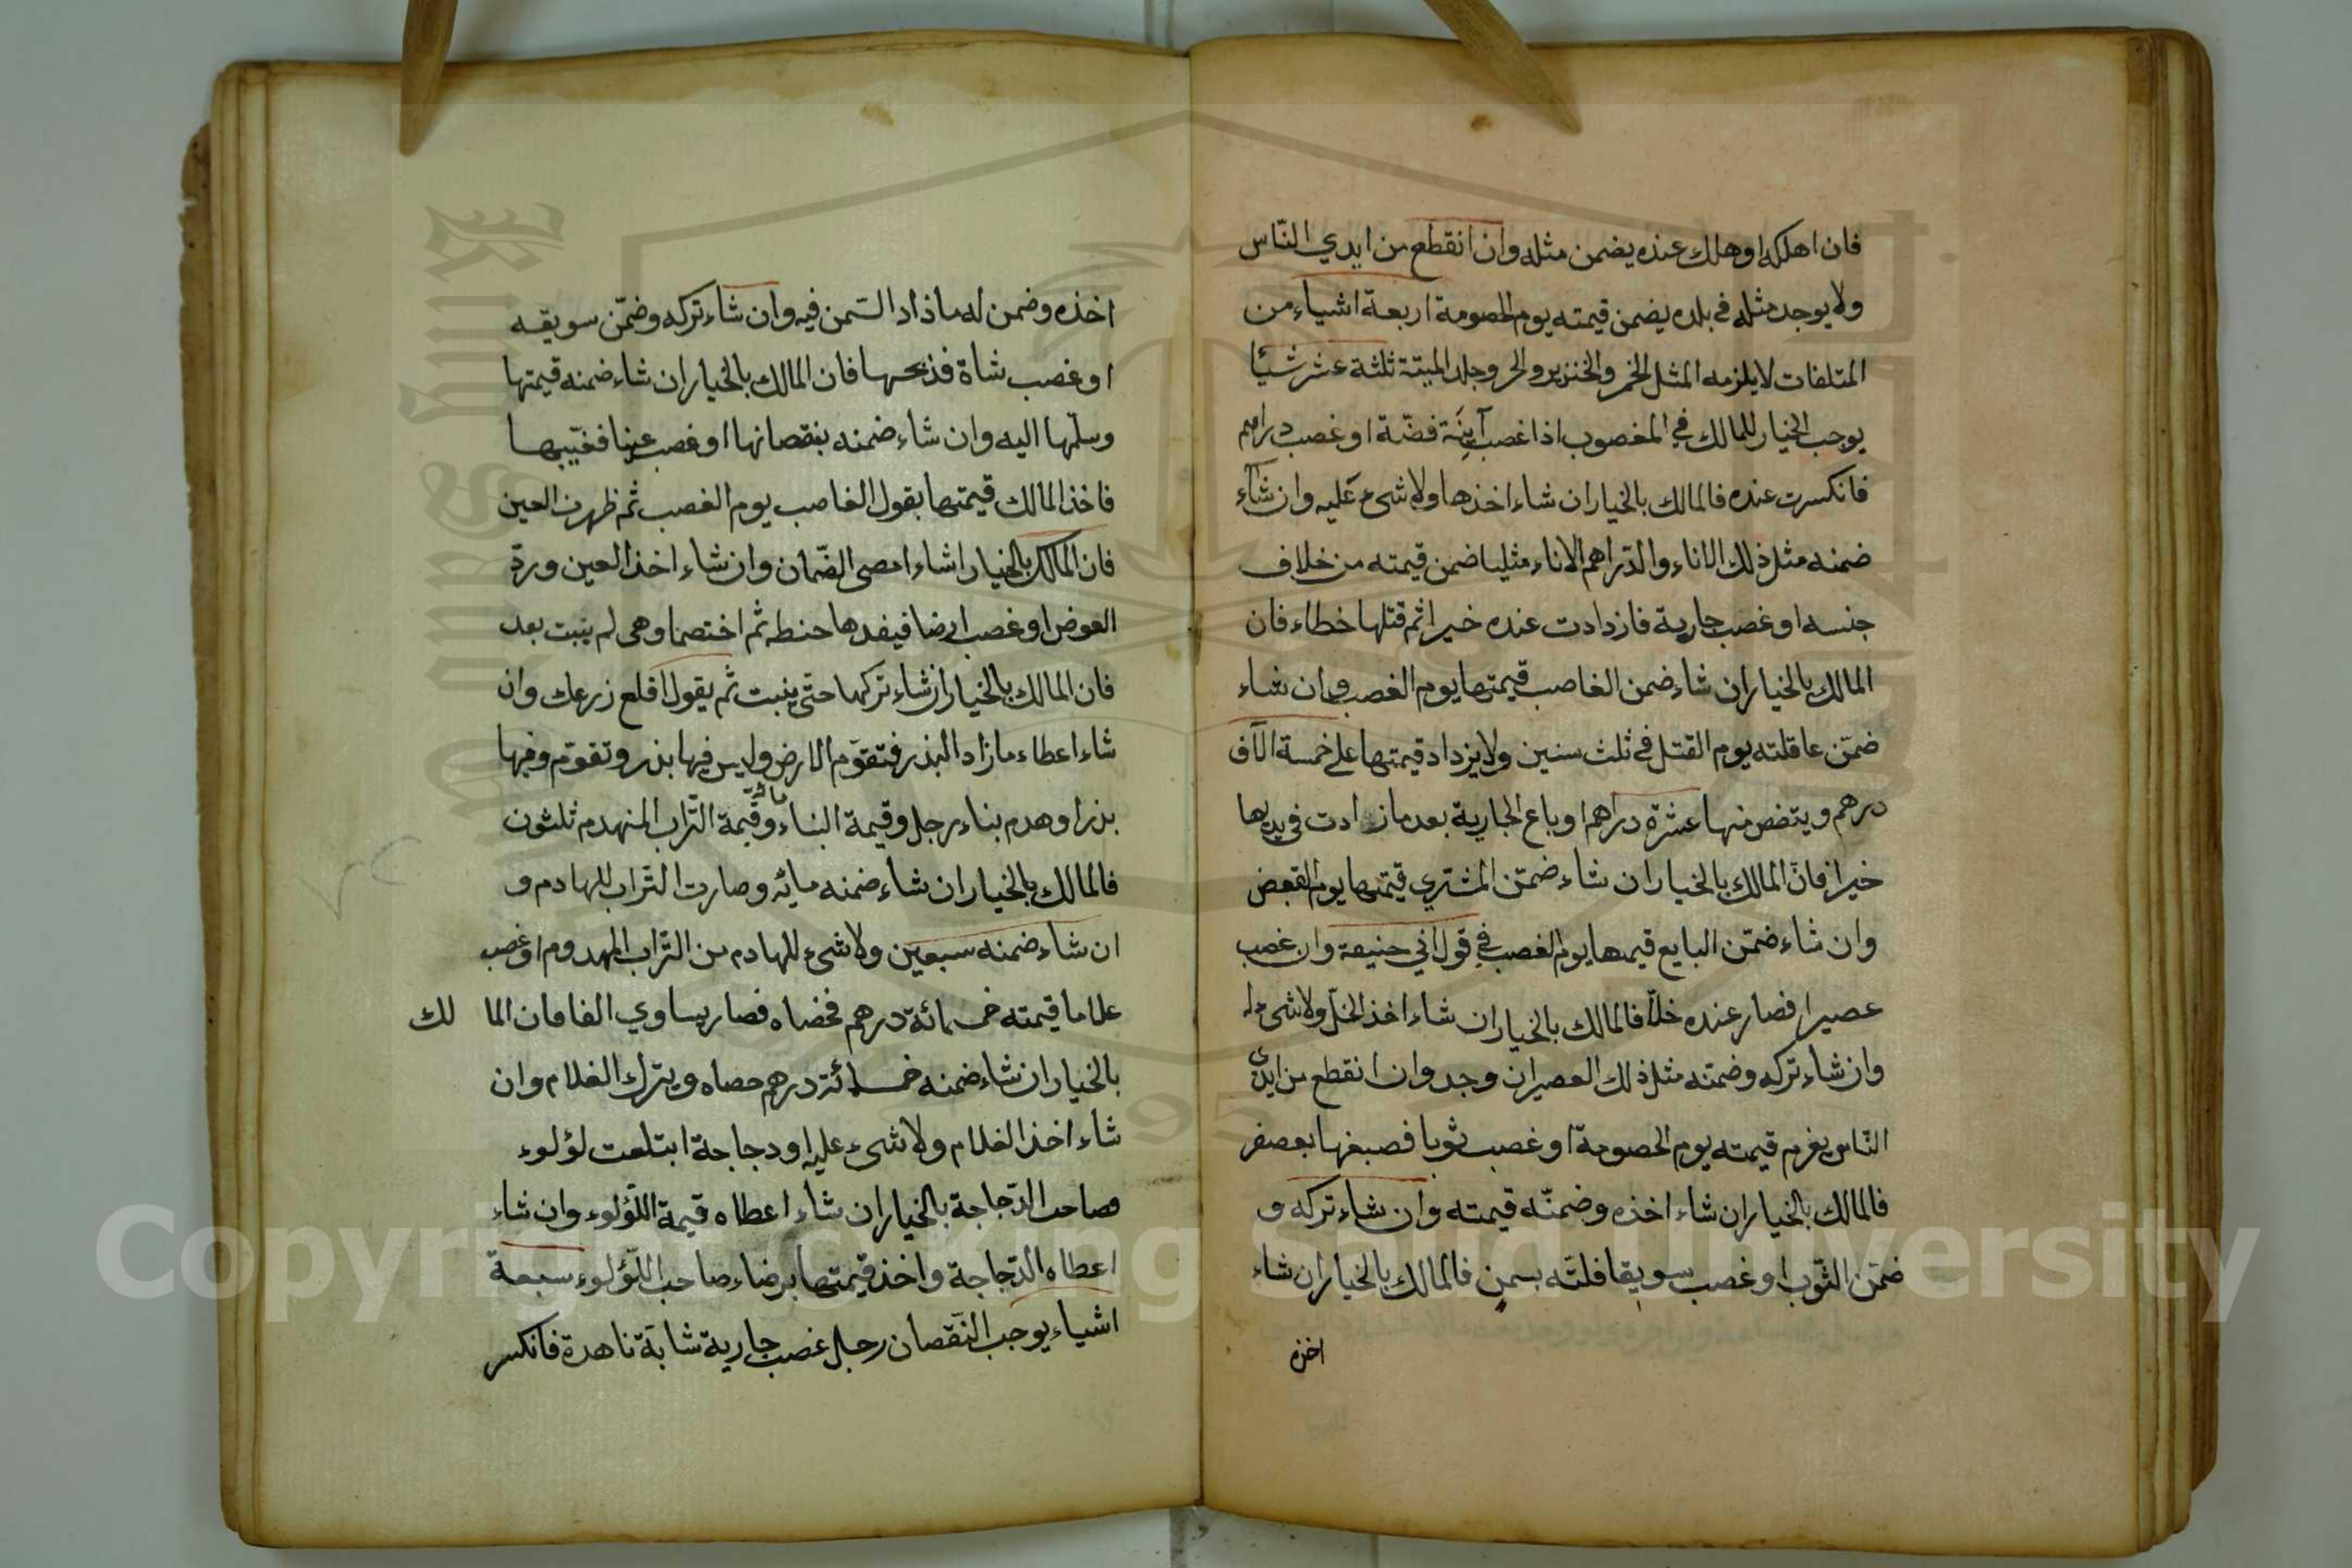 فان اهلكه او هلك عنده يضمن مثله وان انقطع من ايدي النّاس
ولا يوجد مثله في بلده يضمن قيمته يوم الخصومة اربعة اشياء من
المتلفات لا يلزمه المثل الخمر والخنزير والحر وجلد الميتة ثلثة عشر شيئا
يوجب الخيار للمالك في المغصوب اذا غصب آنِيَة فضّة او غصب دراهم
فانكسرت عنده فالمالك بالخيار ان شاء اخذها ولا شيء عليه وان شآء
ضمنه مثل ذلك الاناء والدّراهم الاناء مثليا ضمن قيمته من خلاف
جنسه او غصب جارية فازدادت عنده خيرا ثم قتلها خطاء فان
المالك بالخيار ان شاء ضمن الغاصب قيمتها يوم الغصب وان شاء
ضمّن عاقلته يوم القتل في ثلث سنين ولا يزداد قيمتها على خمسة الآف
درهم وينقص منها عشرة دراهم او باع الجارية بعد ما زادت في يدها
خيرا فانّ المالك بالخيار ان شاء ضمّن المشتري قيمتها يوم القبض
وان شاء ضمّن البايع قيمها يوم الغصب في قول ابي حنيفة وان غصب
عصيرا فصار عنده خلّا فالمالك بالخيار ان شاء اخذ الخلّ ولا شيء له
وان شاء تركه وضمّنه مثل ذلك العصير ان وجد وان انقطع من ايدى
النّاس يغرم قيمته يوم الخصومة او غصب ثوبا فصبغها بعصفر
فالمالك بالخيار ان شاء اخذه وضمنّه قيمته وان شاء تركه و
ضمّن الثّوب او غصب سويقا فلتّه بسمن فالمالك بالخيار ان شاء
اخذه
اخذه وضمن له ما زاد السّمن فيه وان شاء تركه وضمّن سويقه
او غصب شاة فذبحها فان المالك بالخيار ان شاء ضمنه قيمتها
وسلّمها اليه وان شاء ضمنه بنقصانها او غصب عينا فغيّبها
فاخذ المالك قيمتها بقول الغاصب يوم الغصب ثم ظهرت العين
فان المالك بالخيار ا شاء امضى الضّمان وان شاء اخذ العين وردّ
العوض او غصب ارضا حنطه ثم اختصما وهى لم ينبت بعد
فان المالك بالخيار ان شاء تركها حتّى ينبت ثم يقول اقلع زرعك وان
شاء اعطاء ما زاد البذر فتقوّم الارض وليس فيها بذر وتقوّم وفيها
بذر او هدم بناء رجل وقيمة البناء مائة وقيمة التّراب المنهدم ثلثون
فالمالك بالخيار ان شاء ضمنه مايه وصارت التّراب للهادم و
ان شاء ضمنه سبعين ولا شيء للهادم من التّراب المهدوم او غصب
غلاما قيمته خمسمائة درهم فخصاه فصار يساوي الفا فان الما لك
بالخيار ان شاء ضمنه خمسمائة درهم خصاه ويترك الغلام وان
شاء اخذ الغلام ولا شيء عليه او دجاجة ابتلعت لؤلوء
فصاحب الدّجاجة بالخيار ان شاء اعطاه قيمة اللّؤلوء وان شاء
اعطاه الدّجاجة واخذ قيمتها برضاء صاحب اللّؤلوء سبعة
اشياء يوجب النّقصان رجل غصب جارية شابّة ناهدة فانكسر
Copyright © King Saud University